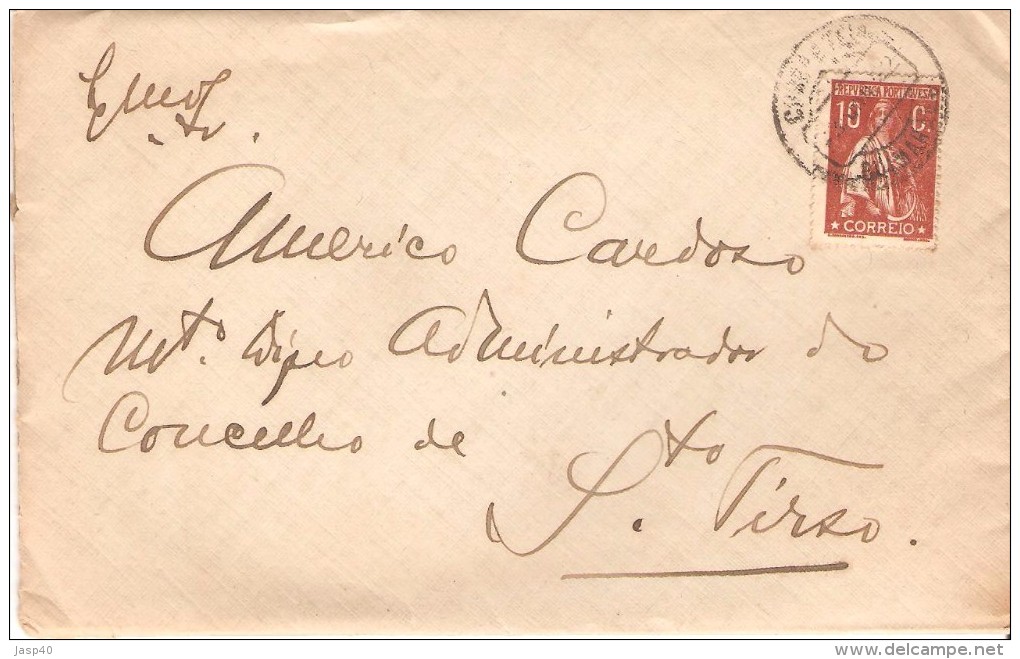 Exmo Sr.
Americo Cardoso
Mto. Digno Administrador do
Concelho de
S.to Tirso.
REPUBLICA PORTUGUESA
10 C.
CORREIO
Jasp40
delcampe.net